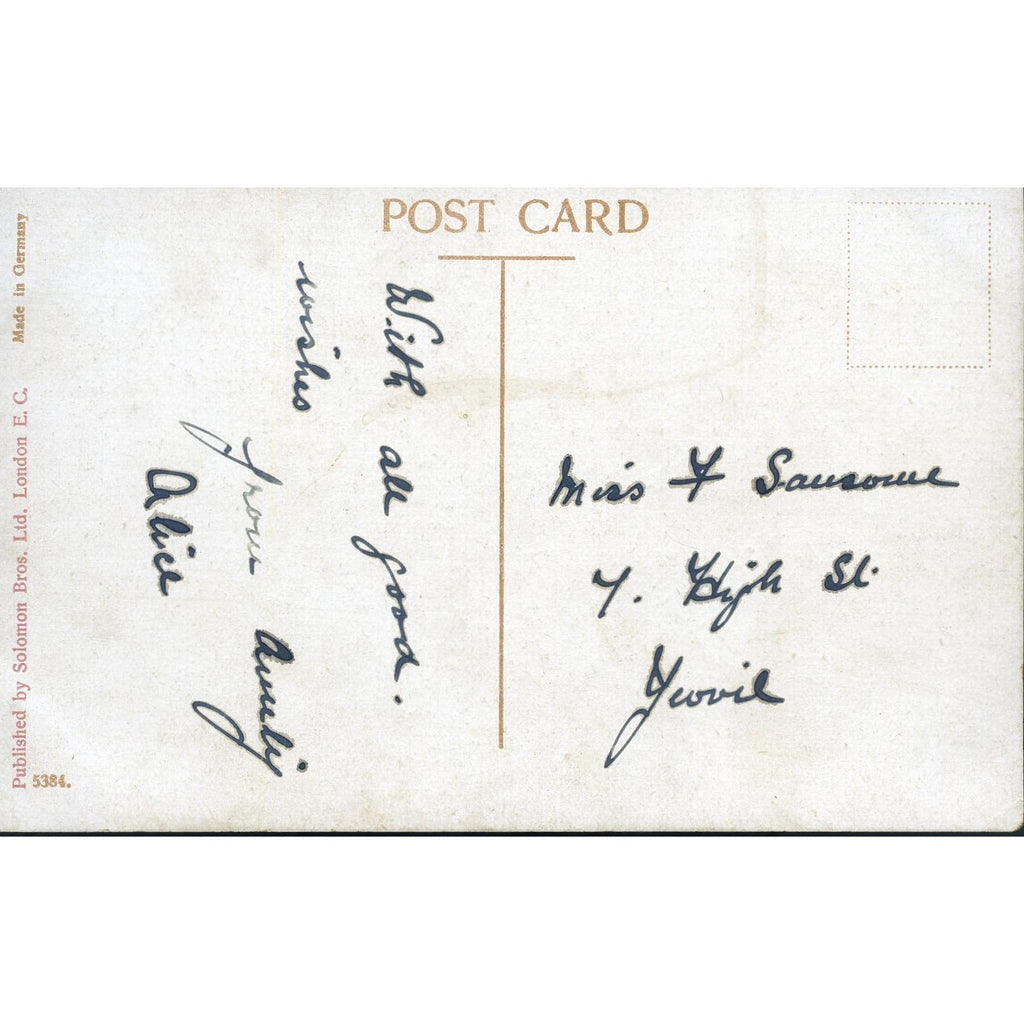 POST CARD
With all good.
wishes
from Aunty
Alice
Miss F Sansome
7. High St.
Yeovil
Published by Solomon Bros. Ltd. London E. C. Made in Germany
5384.